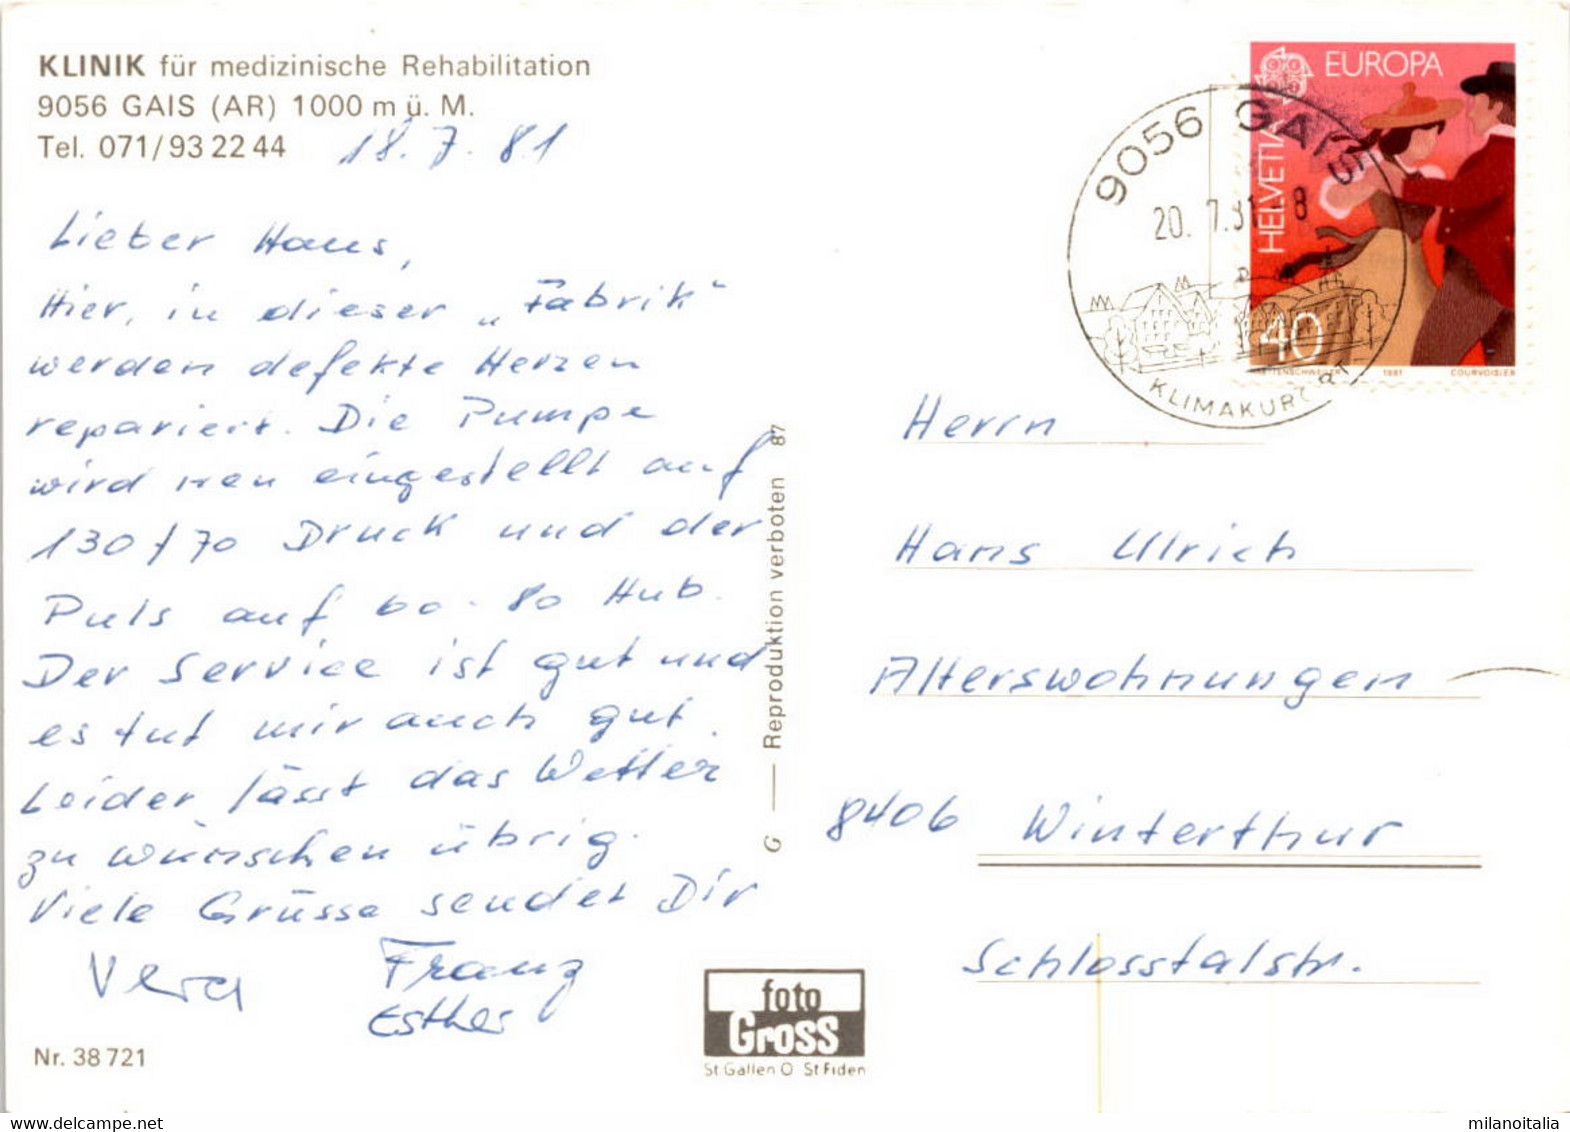 KLINIK für medizinische Rehabilitation
9056 GAIS (AR) 1000 m ü. M.
Tel. 071/93 22 44
18. 7. 81
Lieber Hans,
Hier, in dieser „Fabrik"
werden defekte Herzen
repariert. Die Pumpe
wird neu eingestellt auf
130/70 Druck und der
Puls auf 60-80 Hub.
Der Service ist gut und
es tut mir auch gut.
Leider lässt das Wetter
zu wünschen übrig.
Viele Grüsse sendet Dir
Vera Franz
Esther
Nr. 38 721
G — Reproduktion verboten 87
foto
Gross
St Gallen O St Fiden
9056 GAIS
20. 7.81 - 8
KLIMAKURORT
EUROPA
HELVETIA
40
1981 COURVOISIER
Herrn
Hans Ulrich
Alterswohnungen
8406 Winterthur
Schlosstalstr.
milanoitalia